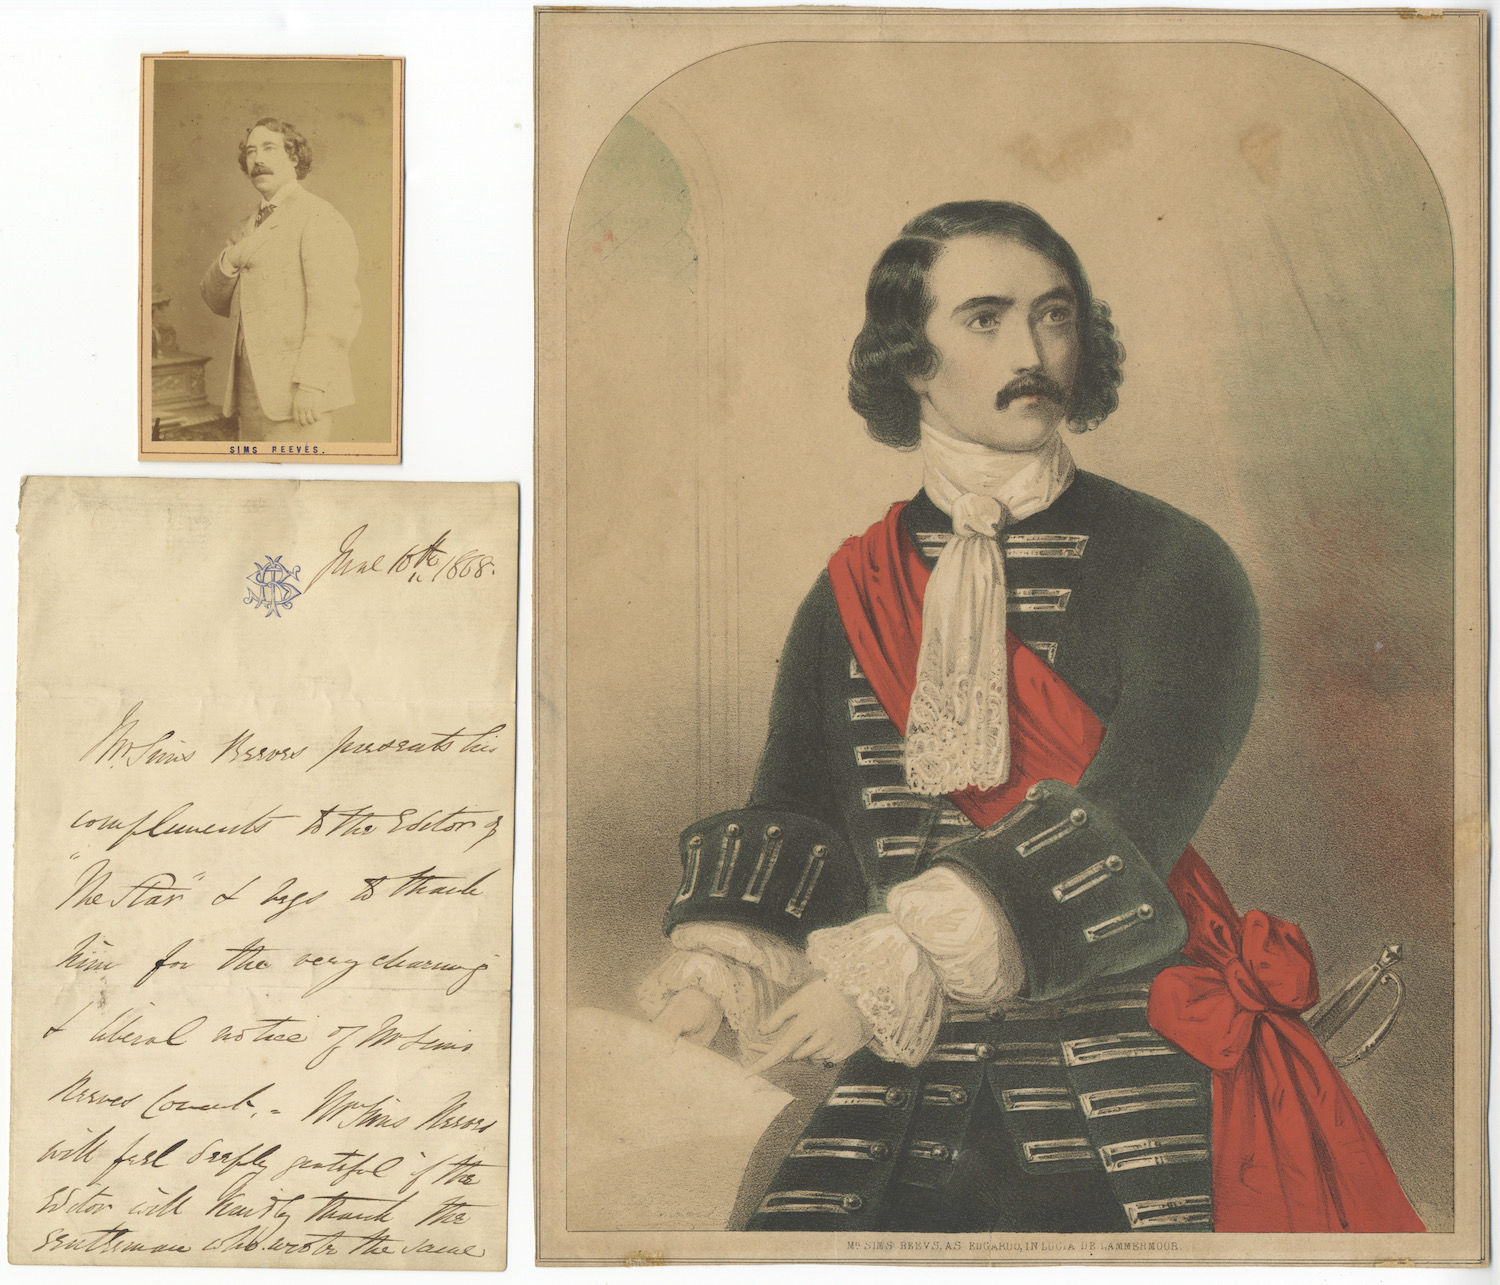 SIMS REEVES.
June 18th 1868.
Mr. Sims Reeves presents his
compliments to the Editor of
"The Star" & begs to thank
him for the very charming
& liberal notice of Mr Sims
Reeves Concert. - Mr Sims Reeves
will feel deeply grateful if the
Editor will kindly thank the
gentleman who wrote the same
MR SIMS REEVS, AS EDGARDO, IN LUCIA DE LAMMERMOOR.